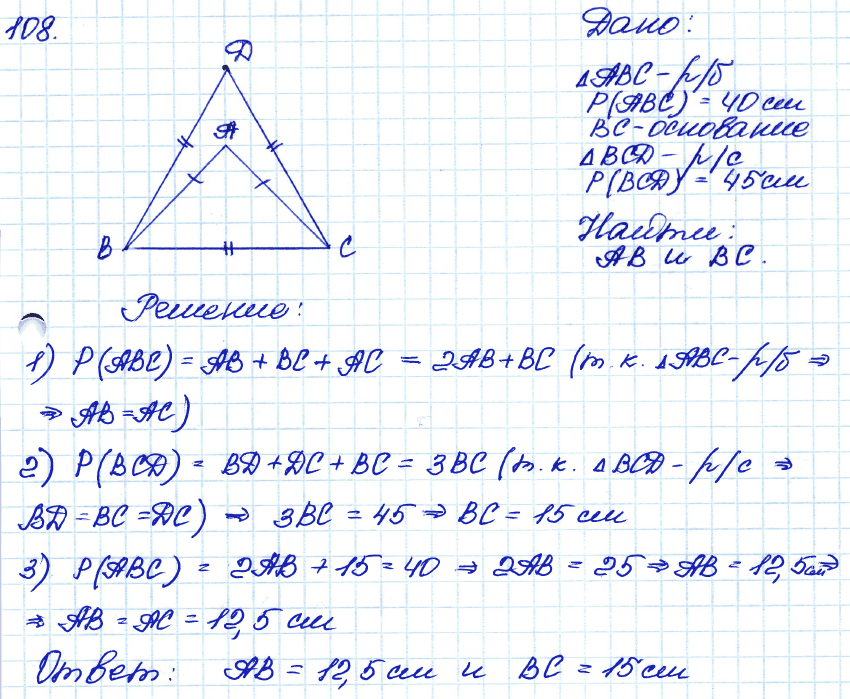 108.
Дано:
D
△ABC - р/б
P(ABC) = 40 см
A
BC - основание
△BCD - р/с
P(BCD) = 45 см
B
C
Найти:
AB и BC.
Решение:
1) P(ABC) = AB + BC + AC = 2AB + BC (т.к. △ABC - р/б ⇒
⇒ AB = AC)
2) P(BCD) = BD + DC + BC = 3BC (т.к. △BCD - р/с ⇒
BD = BC = DC) ⇒ 3BC = 45 ⇒ BC = 15 см
3) P(ABC) = 2AB + 15 = 40 ⇒ 2AB = 25 ⇒ AB = 12,5см ⇒
⇒ AB = AC = 12,5 см
Ответ: AB = 12,5 см и BC = 15 см